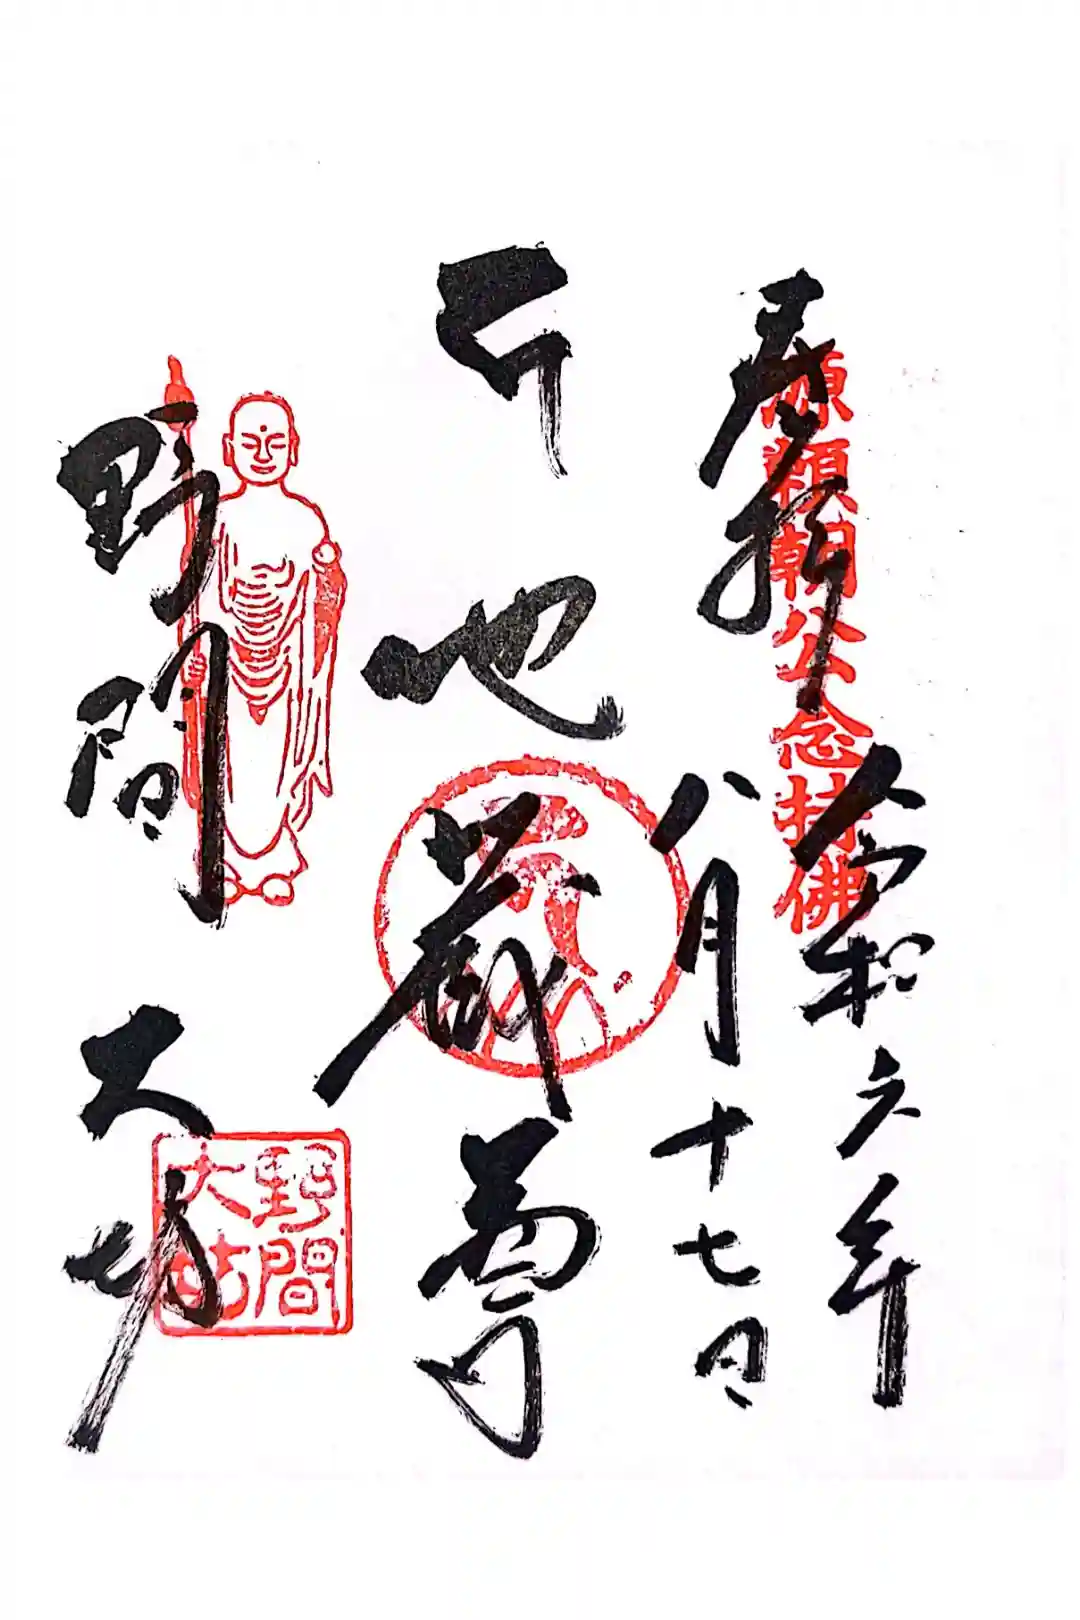 奉拝
源頼朝公念持佛
令和六年
八月十七日
地蔵尊
野間大坊
野間
大坊